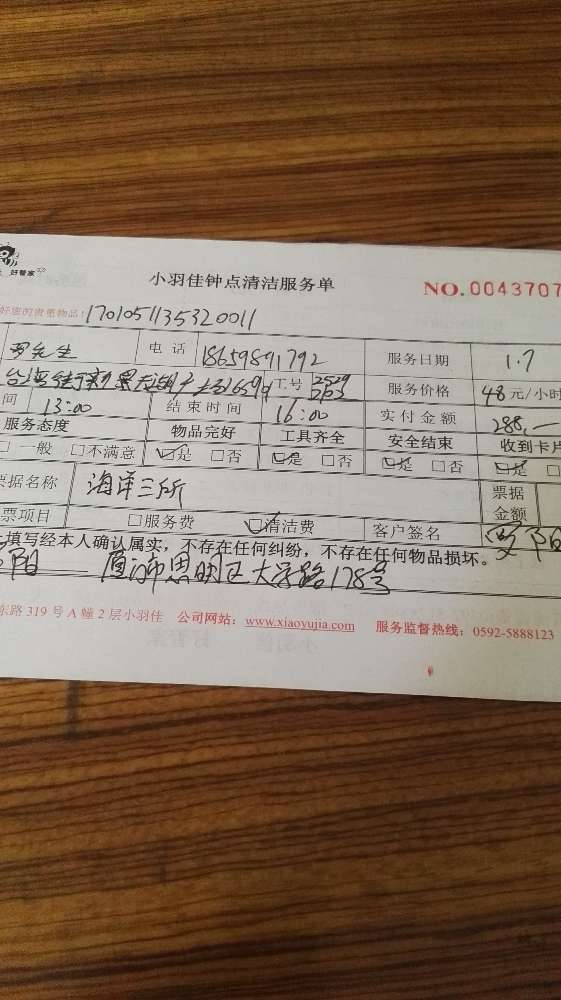 好管家
小羽佳钟点清洁服务单 NO.0043707
好您的贵重物品: 1701051135320011
罗先生 电话 18659891792 服务日期 1.7
工号 2529 2163 服务价格 48元/小时
间 13:00 结束时间 16:00 实付金额 288.—
服务态度 物品完好 工具齐全 安全结束 收到卡片
□一般 □不满意 ☑是 □否 ☑是 □否 ☑是 □否 ☑是 □
票据名称 海洋三所 票据金额
票项目 □服务费 ☑清洁费 客户签名 罗阳
填写经本人确认属实,不存在任何纠纷,不存在任何物品损坏。
阳 厦门市思明区大学路178号
东路319号A幢2层小羽佳 公司网站:www.xiaoyujia.com 服务监督热线:0592-5888123